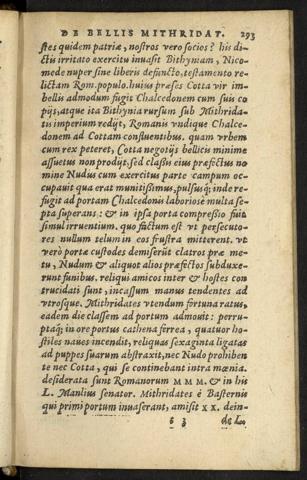 DE BELLIS MITHRIDAT. 293
stes quidem patriæ, nostros vero socios? his di-
ctis irritato exercitu inuasit Bithyniam, Nico-
mede nuper sine liberis defuncto, testamento re-
lictam Rom. populo. huius præses Cotta vir im-
bellis admodum fugit Chalcedonem cum suis co
pijs, atque ita Bithynia rursum sub Mithrida-
tis imperium redijt, Romanis vndique Chalce-
donem ad Cottam confluentibus. quam vrbem
cum rex peteret, Cotta negotijs bellicis minime
assuetus non prodijt, sed classis eius præfectus no
mine Nudus cum exercitus parte campum oc-
cupauit qua erat munitissimus, pulsusq; inde re-
fugit ad portam Chalcedonis laboriose multa se-
pta superans: & in ipsa porta compressio fuit
simul irruentium. quo factum est vt persecuto-
res nullum telum in eos frustra mitterent. vt
verò portæ custodes demiserūt clatros præ me-
tu, Nudum & aliquot alios præfectos subduxe-
runt funibus. reliqui amicos inter & hostes con
trucidati sunt, incassum manus tendentes ad
vtrosque. Mithridates vtendum fortuna ratus,
eadem die classem ad portum admouit: perru-
ptaq; in ore portus cathena ferrea, quatuor ho-
stiles naues incendit, reliquas sexaginta ligatas
ad puppes suarum abstraxit, nec Nudo prohiben
te nec Cotta, qui se continebant intra mœnia.
desiderata sunt Romanorum M M M. & in his
L. Manlius senator. Mithridates è Basternis
qui primi portum inuaserant, amisit X X. dein-
6 3 de Lu